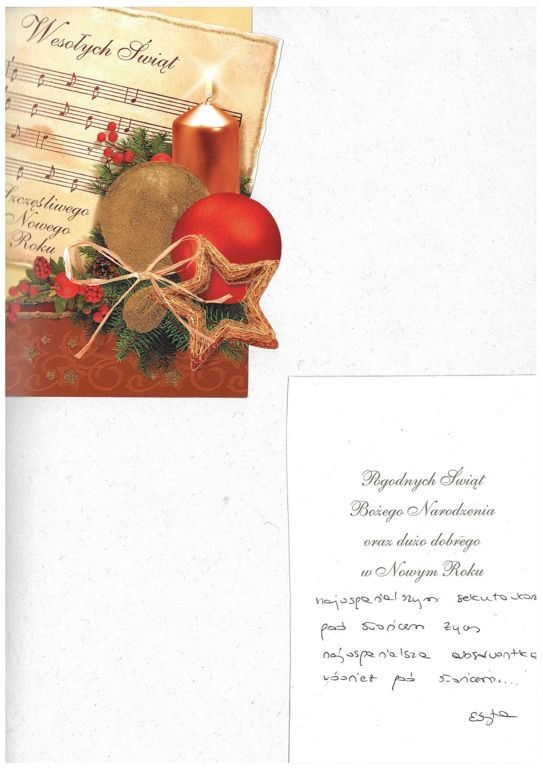 Wesołych Świąt
Szczęśliwego
Nowego
Roku
Pogodnych Świąt
Bożego Narodzenia
oraz dużo dobrego
w Nowym Roku
najwspanialszym
pod słońcem życzy
najwspanialsza
również pod słońcem....